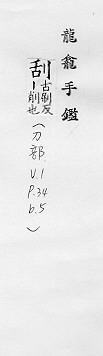 龍龕手鑑
刮古刹反
丨削也
（刀部
V.1
P.34
b.5）